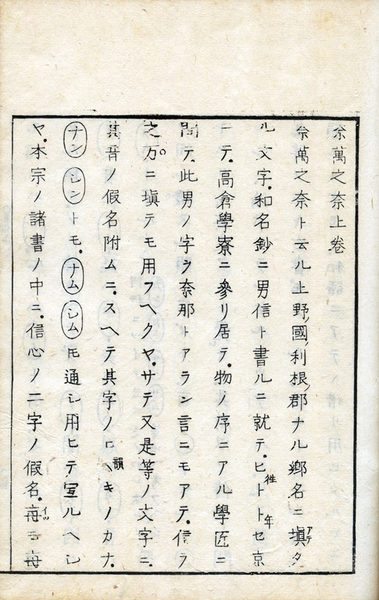 奈萬之奈上卷
奈萬之奈ト云ル上野ノ國利根ノ郡ナル鄕名ニ塡アテタ
ル文字、和名鈔ニ男信ト書ルニ就テ、ヒトトセ往年京
ニテ、高倉學寮ニ參リ居テ、物ノ序ニアル學匠ニ
問テ、此男ノ字ヲ奈那トアラン言ニモアテ、信ヲ
之万ニ塡テモ用フヘクヤ、サテ又是等ノ文字ニ、
其音ノ假名附ムニ、スヘテ其字ノヒヽキ韻ノカナ、
ナンシントモ、ナムシムトモ通シ用ヒテ宣ルヘシ
ヤ、本宗ノ諸書ノ中ニ、信心ノ二字ノ假名、每イツモ每